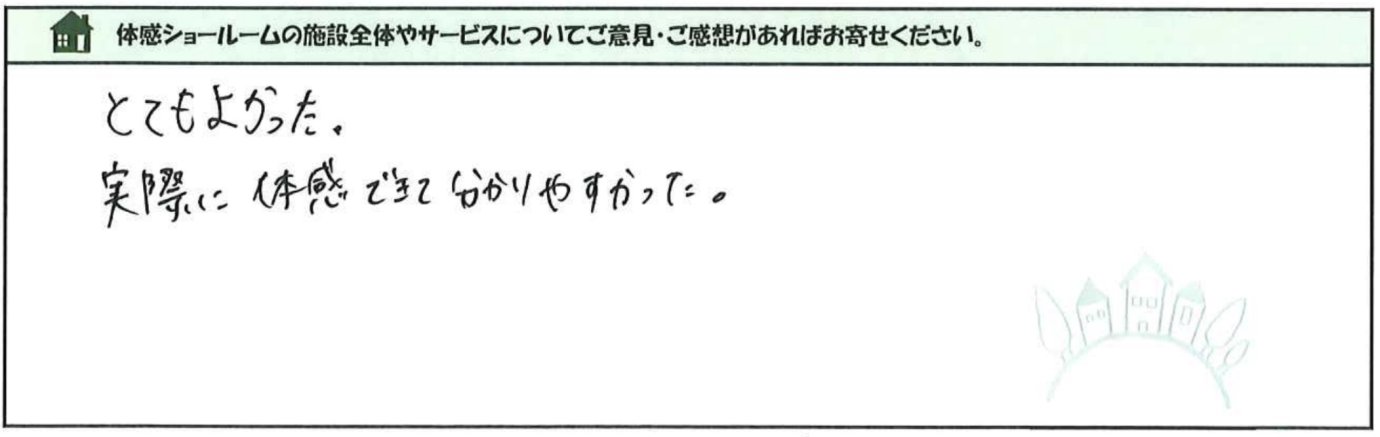 体感ショールームの施設全体やサービスについてご意見・ご感想があればお寄せください。
とてもよかった。
実際に体感できて分かりやすかった。